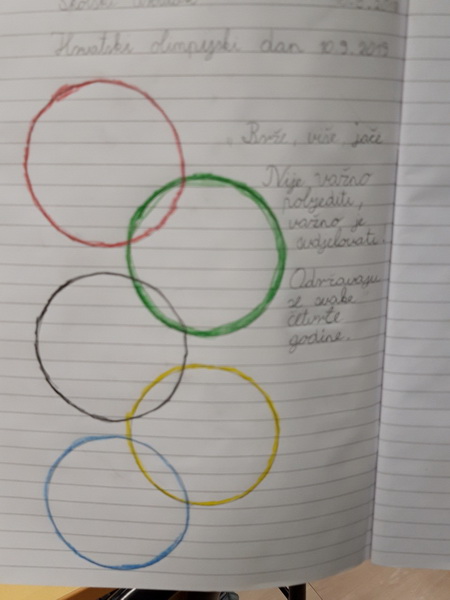 Hrvatski olimpijski dan 10.9.2019
Brže, više, jače
Nije važno
pobjediti,
važno je
sudjelovati.
Održavaju
se svake
četvrte
godine.